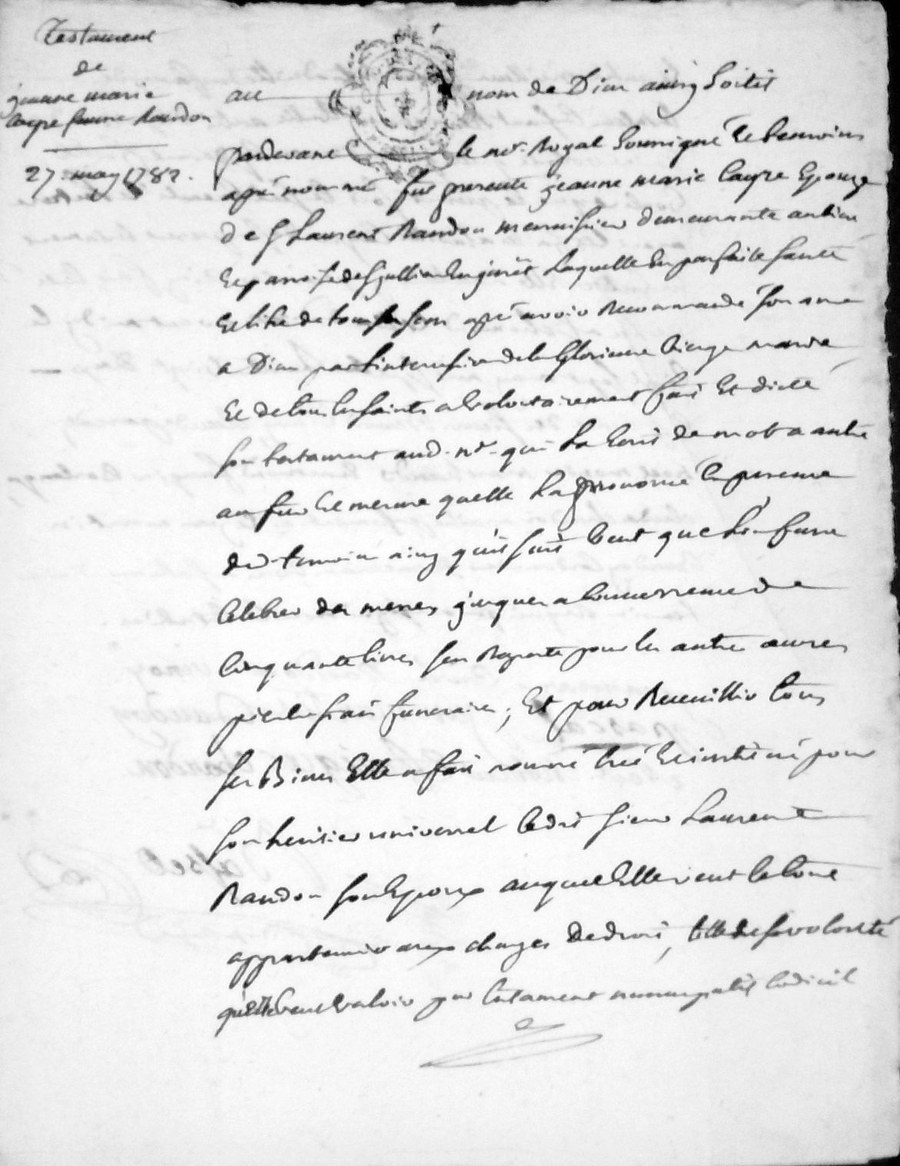 Testament
de
jeanne marie
Cayre femme Randon
27 may 1782.
au nom de Dieu ainsy soitil
pardevant le nre Royal soussigné et temoins
apres nommés fut presente jeanne marie Cayre Epouse
de Sr Laurent Randon menuisier demeurante au lieu
et paroisse de St jullien laquelle En parfaite santé
et libre de tous ses sens apres avoir Recommandé son ame
a Dieu par l'intercession de la Glorieuse vierge marie
et de tous les saints a volontairement fait Et dicté
son testament aud. nre qui la ecrit de mot a autre
au fur et mesure quelle la prononcé En presence
des temoins ainsy quil suit veut que lon fasse
Celebrer des messes jusques a concurrence de
Cinquante livres sen Raporte pour les autres œuvres
pies frais funeraires; Et pour Recueillir tous
ses Biens Elle a fait nommé Creé et institué pour
son heritier universel ledit sieur Laurent
Randon son Epoux auquel Elle veut le tout
appartenir aux charges de droit, telle est sa volonté
qu'elle veut valoir par testament nuncupatif Codicil